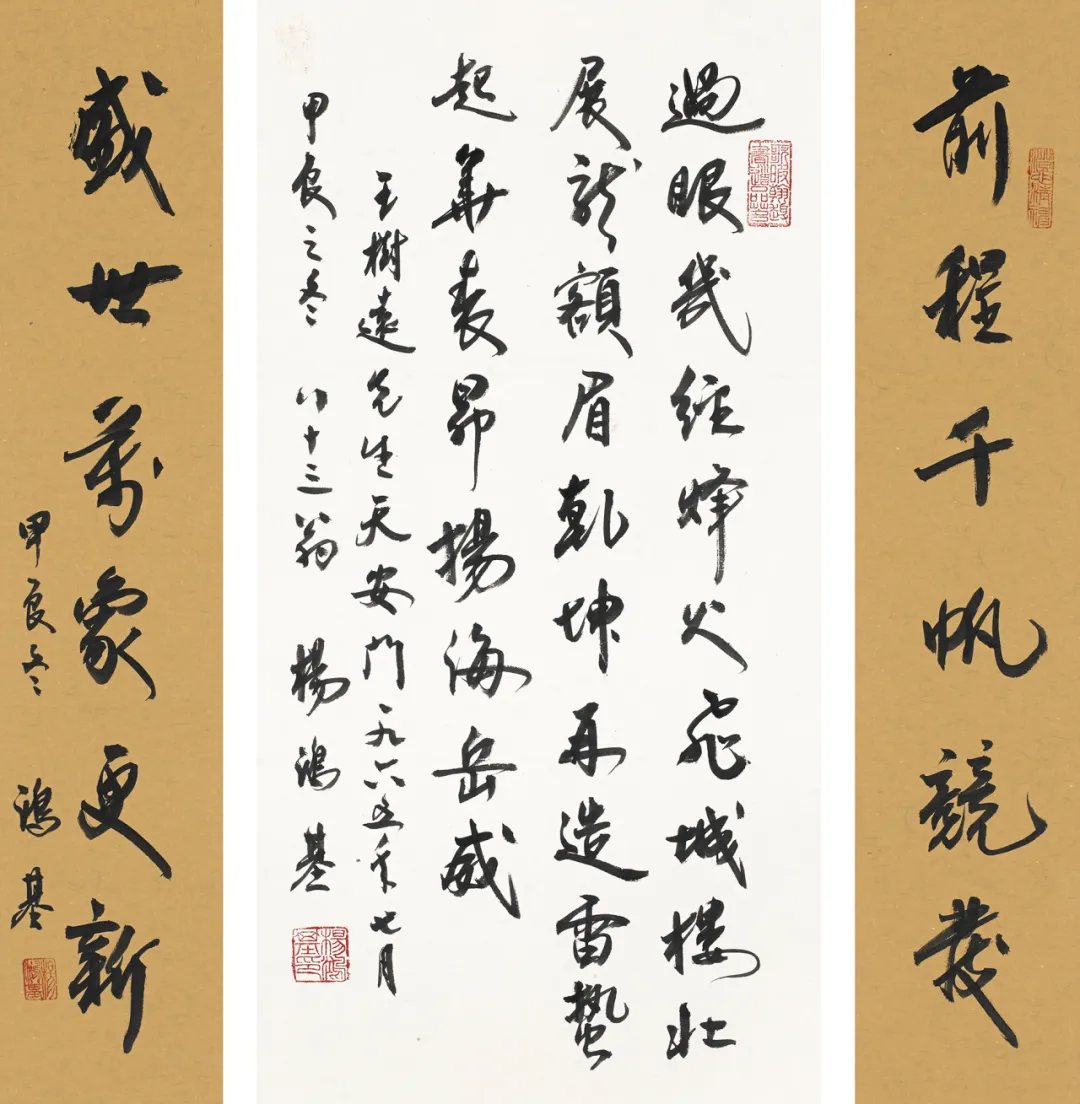 前程千帆競發
過眼幾經烽火飛城樓壯
展龍額眉乾坤再造雷蟄
起華表昂揚海岳威
王樹遠先生天安門一九六五年七月
甲辰之冬 八十三翁 楊鴻基
楊鴻基印
盛世萬象更新
甲辰冬 鴻基